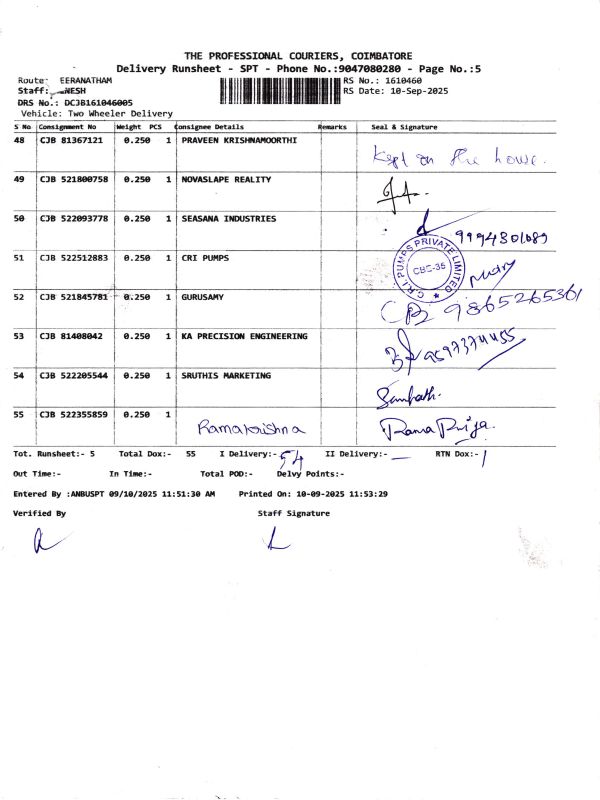 THE PROFESSIONAL COURIERS, COIMBATORE
Delivery Runsheet - SPT - Phone No.:9047080280 - Page No.:5
Route: EERANATHAM RS No.: 1610460
Staff: NESH RS Date: 10-Sep-2025
DRS No.: DCJB161046005
Vehicle: Two Wheeler Delivery
S No Consignment No Weight PCS Consignee Details Remarks Seal & Signature
48 CJB 81367121 0.250 1 PRAVEEN KRISHNAMOORTHI Kept on the house.
49 CJB 521800758 0.250 1 NOVASLAPE REALITY
50 CJB 522093778 0.250 1 SEASANA INDUSTRIES 9994301089
51 CJB 522512883 0.250 1 CRI PUMPS C.R.I. PUMPS PRIVATE LIMITED CBE-35
52 CJB 521845781 0.250 1 GURUSAMY 9865265361
53 CJB 81408042 0.250 1 KA PRECISION ENGINEERING 9597374455
54 CJB 522205544 0.250 1 SRUTHIS MARKETING Sampath.
55 CJB 522355859 0.250 1 Ramakrishna Rama Priya.
Tot. Runsheet:- 5 Total Dox:- 55 I Delivery:- 54 II Delivery:- — RTN Dox:- 1
Out Time:- In Time:- Total POD:- Delvy Points:-
Entered By :ANBUSPT 09/10/2025 11:51:30 AM Printed On: 10-09-2025 11:53:29
Verified By Staff Signature